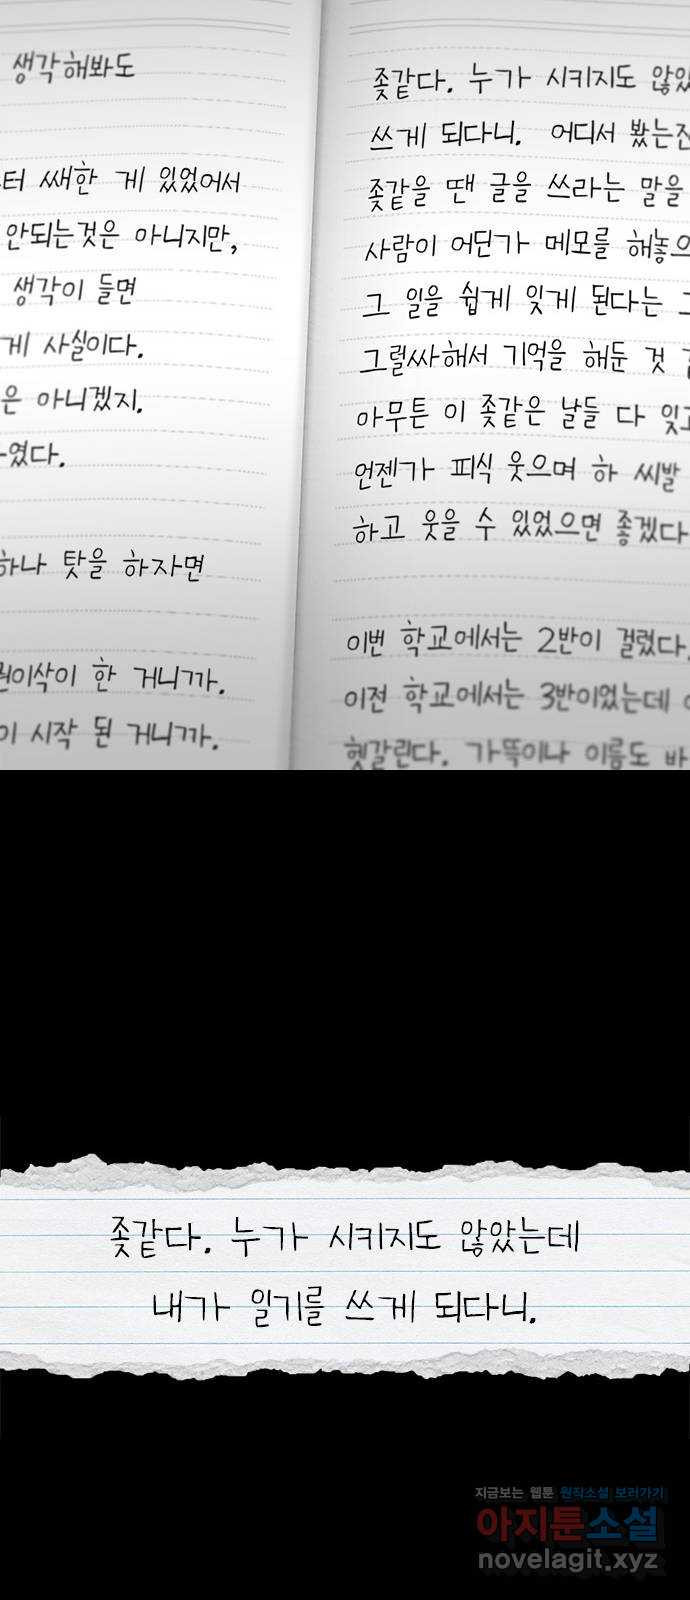 생각해봐도
터 쌔한 게 있었어서
안되는것은 아니지만,
생각이 들면
게 사실이다.
은 아니겠지.
였다.
하나 탓을 하자면
이삭이 한 거니까.
이 시작 된 거니까.
좆같다. 누가 시키지도 않았
쓰게 되다니. 어디서 봤는진
좆같을 땐 글을 쓰라는 말을
사람이 어딘가 메모를 해놓으
그 일을 쉽게 잊게 된다는
그럴싸해서 기억을 해둔 것
아무튼 이 좆같은 날들 다 잊고
언젠가 피식 웃으며 하 씨발
하고 웃을 수 있었으면 좋겠다
이번 학교에서는 2반이 걸렸다.
이전 학교에서는 3반이었는데
헷갈린다. 가뜩이나 이름도 바
좆같다. 누가 시키지도 않았는데
내가 일기를 쓰게 되다니.
지금보는 웹툰 원작소설 보러가기
아지툰소설
novelagit.xyz